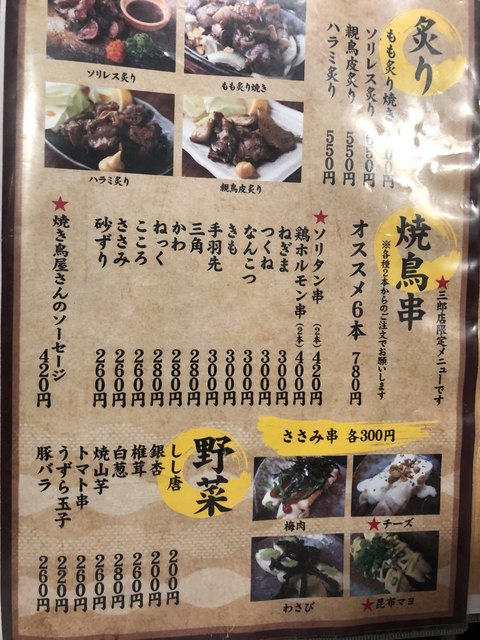 炙り
もも炙り焼き
ソリレス炙り 650円
親鳥皮炙り 550円
ハラミ炙り 550円
ソリレス炙り
もも炙り焼き
ハラミ炙り
親鳥皮炙り
焼鳥串
★三郎店限定メニューです
※各種2本からのご注文でお願いします
オススメ6本 780円
★ソリタン串(2本) 420円
鶏ホルモン串(2本) 400円
ねぎま 300円
つくね 300円
なんこつ 300円
きも 300円
手羽先 300円
三角 280円
かわ 280円
ねっく 280円
こころ 260円
ささみ 260円
砂ずり 260円
★焼き鳥屋さんのソーセージ 420円
ささみ串 各300円
梅肉
★チーズ
わさび
★昆布マヨ
野菜
しし唐 200円
銀杏 200円
椎茸 260円
白葱 280円
焼山芋 260円
トマト串 260円
うずら玉子 220円
豚バラ 260円